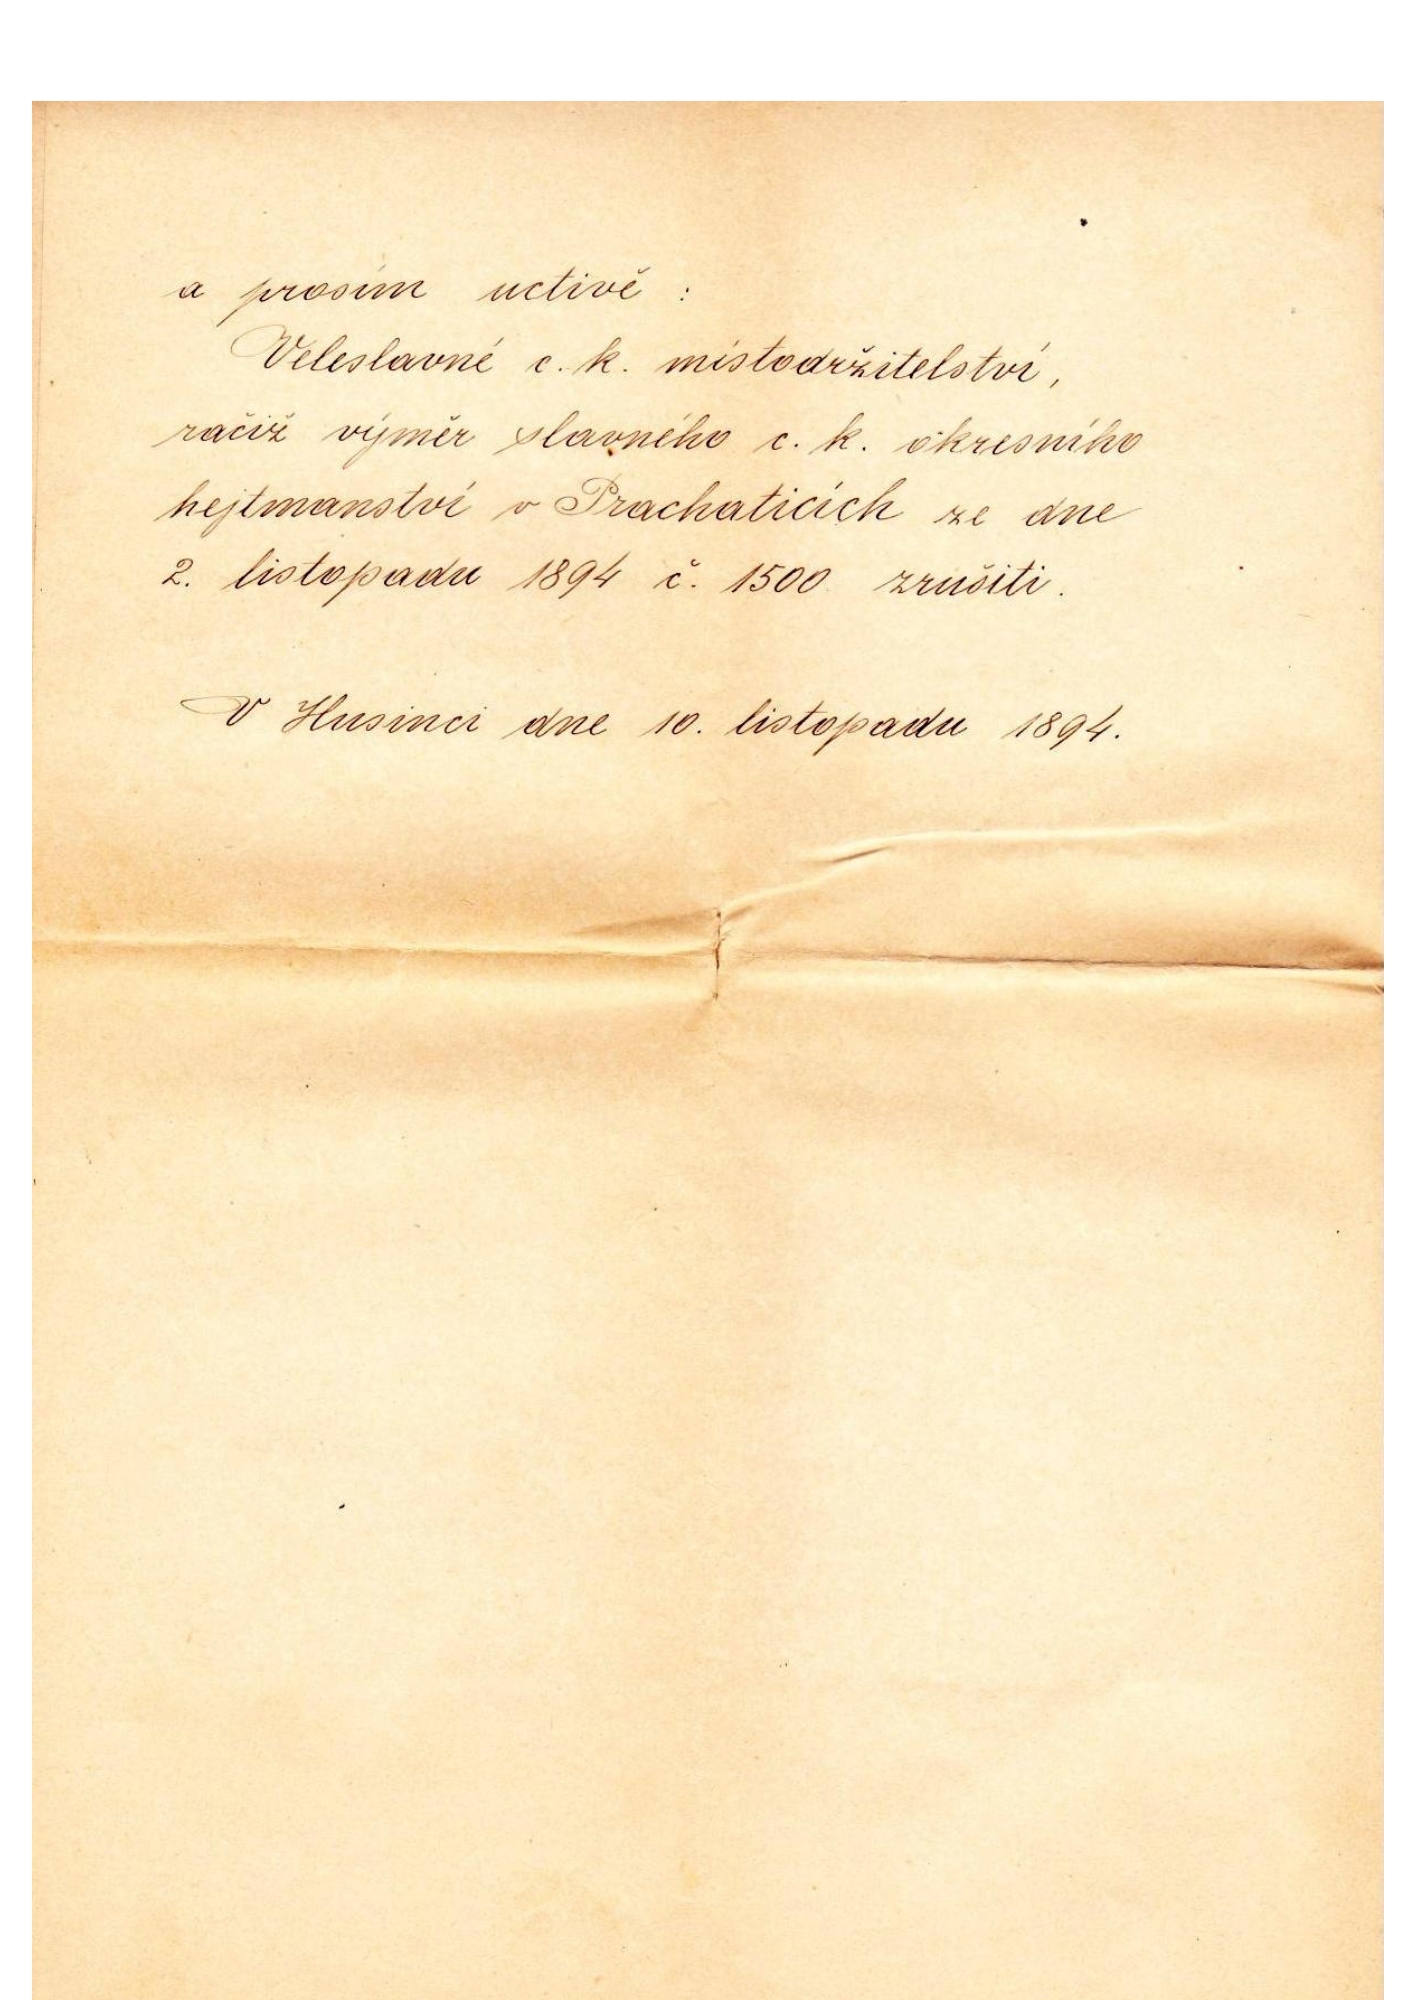 a prosím uctivě :
Veleslavné c. k. místodržitelství,
račiž výměr slavného c. k. okresního
hejtmanství v Prachaticích ze dne
2. listopadu 1894 č. 1500 zrušiti.
V Husinci dne 10. listopadu 1894.